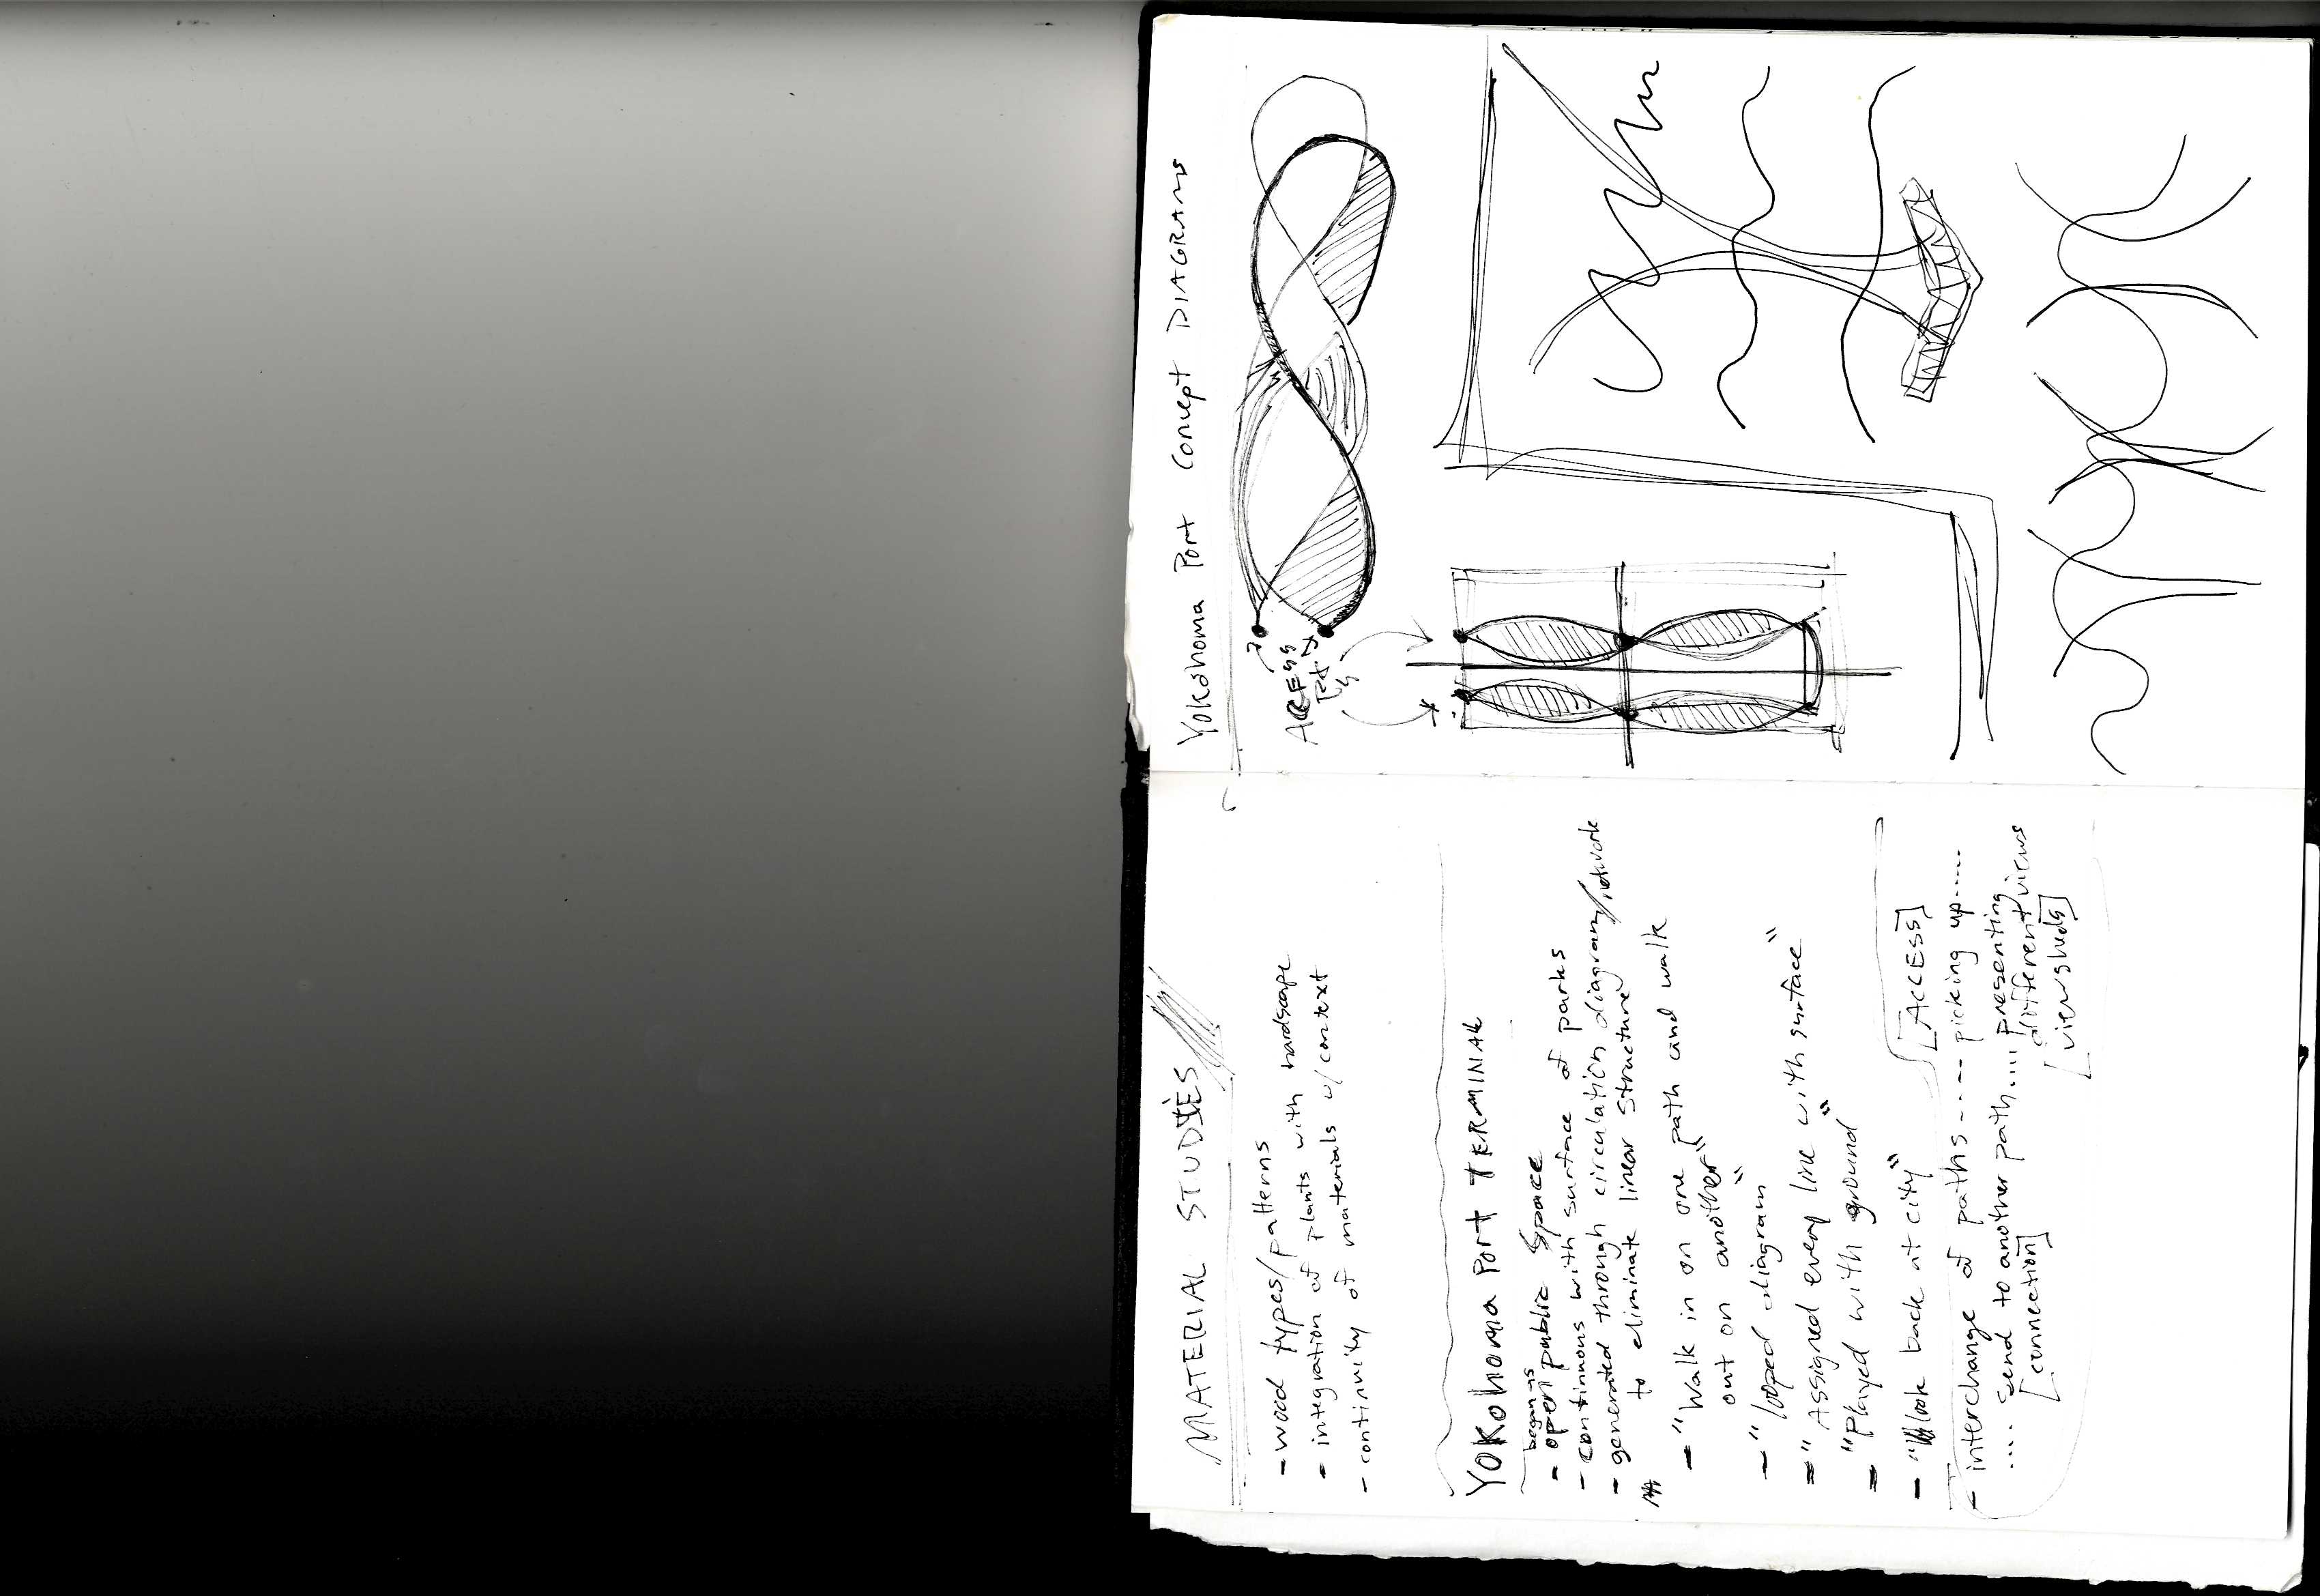 MATERIAL STUDIES
- wood types/patterns
- integration of plants with hardscape
- continuity of materials w/context
YOKOHOMA PORT TERMINAL
began as
- open public space
- continuous with surface of parks
- generated through circulation diagram/network
to eliminate linear structure
- "Walk in on one path and walk
out on another"
- "looped diagram"
- "Assigned every line with surface"
- "Played with ground"
- "look back at city" [ACCESS]
- interchange of paths---- picking up.....
.... send to another path..... presenting
[connection] different views
[viewsheds]
YOKOHOMA PORT CONCEPT DIAGRAMS
ACCESS